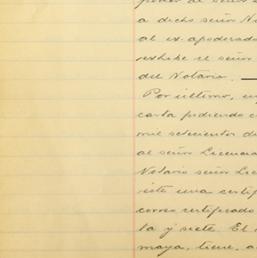 poder al señor
a dicho señor No
al ex-apoderado
exhibe el señor
del Notario.
Por último,
carta pidiendo
mil setecientos d
al señor Licencia
Notario señor Lic
siete una certif
correo certificado
ta y siete. El
maya, tiene, a